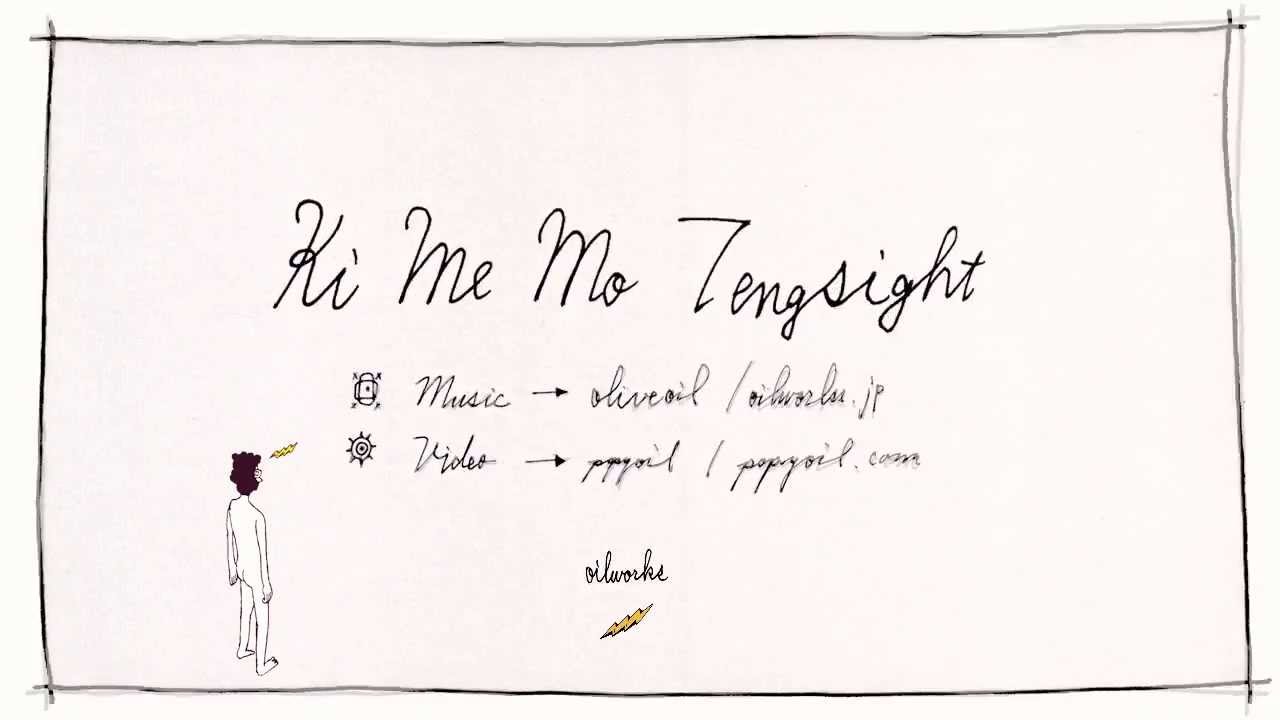 Ki Me Mo Tengsight
Music → oliveoil / oilworks.jp
Video → popyoil / popyoil.com
oilworks